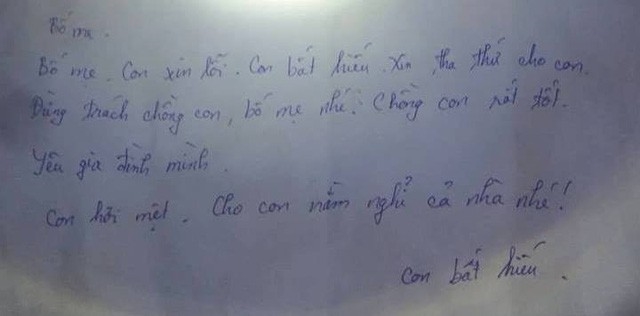 Bố mẹ.
Bố mẹ. Con xin lỗi. Con bất hiếu. Xin tha thứ cho con.
Đừng trách chồng con, bố mẹ nhé! Chồng con rất tốt.
Yêu gia đình mình.
Con hơi mệt. Cho con nằm nghỉ cả nhà nhé!
Con bất hiếu.